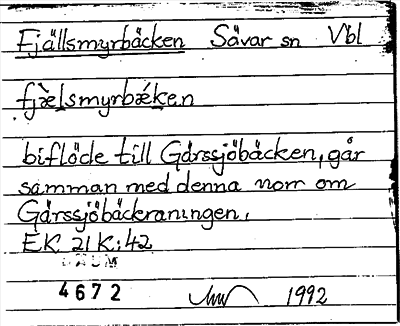 Fjällsmyrbäcken Sävar sn Vbl
fjæ̀lsmyrbǽken
biflöde till Gårssjöbäcken, går
samman med denna norr om
Gårssjöbäckraningen.
EK 21 K:42
DAUM
4672 1992